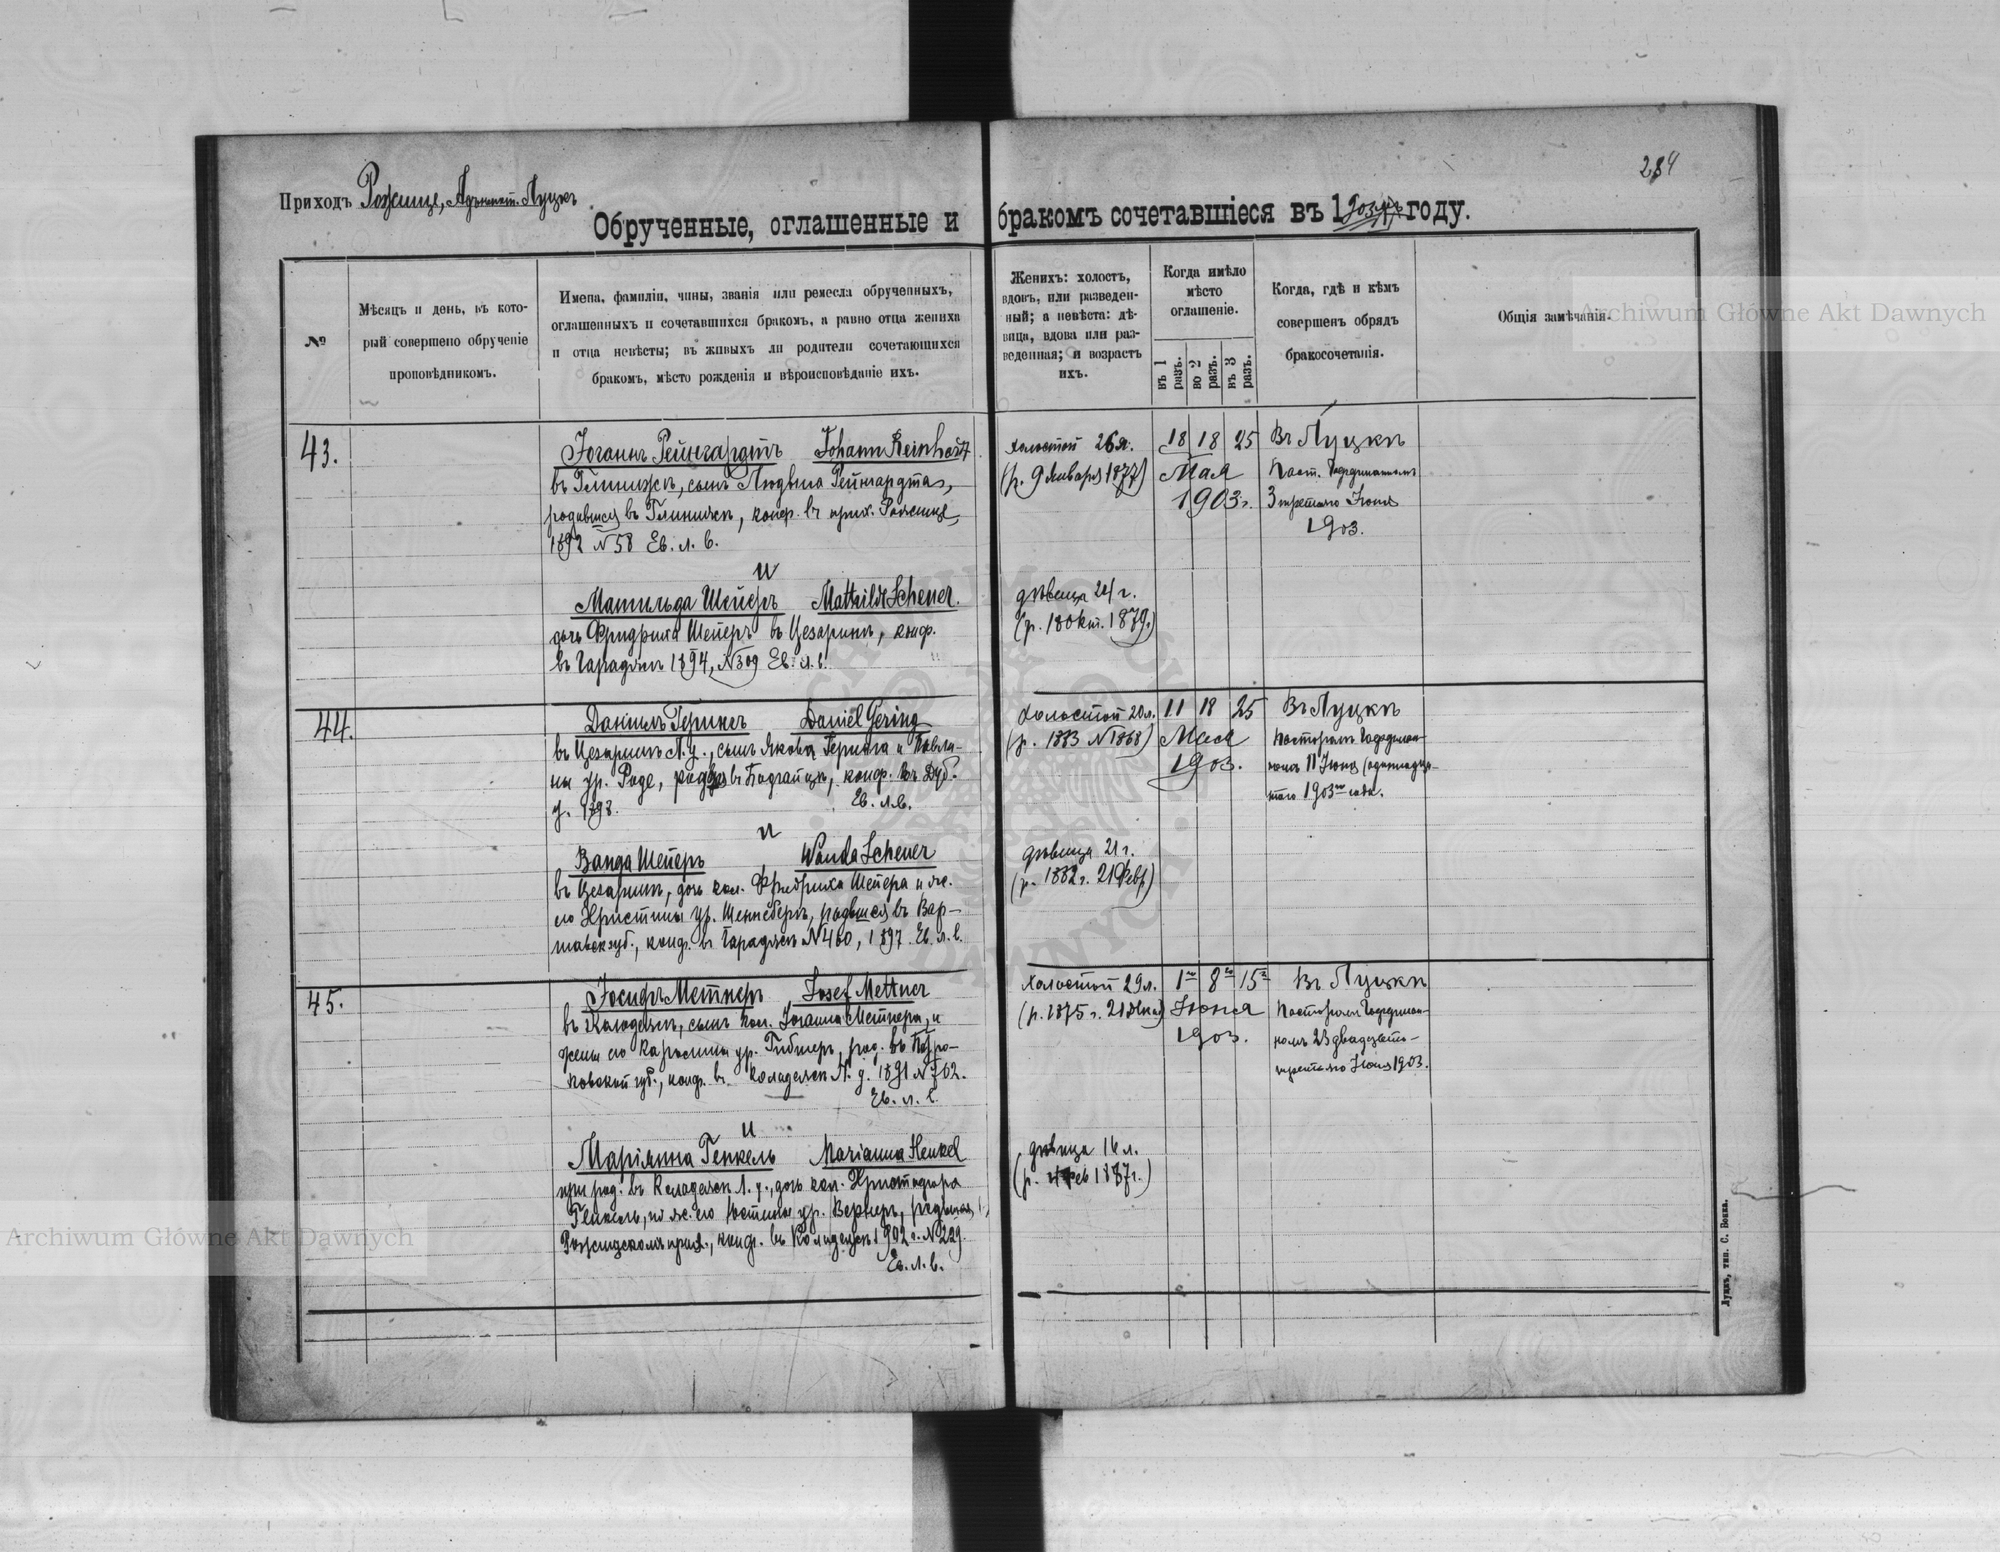 284
Приходъ Рожище, Адъюнкт. Луцкъ
Обрученные, оглашенные и бракомъ сочетавшіеся въ 1903мъ году.
№
Мѣсяцъ и день, въ кото-
рый совершено обрученіе
проповѣдникомъ.
Имена, фамиліи, чины, званія или ремесла обрученныхъ,
оглашенныхъ и сочетавшихся бракомъ, а равно отца жениха
и отца невѣсты; въ живыхъ ли родители сочетающихся
бракомъ, мѣсто рожденія и вѣроисповѣданіе ихъ.
Женихъ: холостъ,
вдовъ, или разведен-
ный; а невѣста: дѣ-
вица, вдова или раз-
веденная; и возрастъ
ихъ.
Когда имѣло
мѣсто
оглашеніе.
въ 1 разъ.
во 2 разъ.
въ 3 разъ.
Когда, гдѣ и кѣмъ
совершенъ обрядъ
бракосочетанія.
Общія замѣчанія.
43.
Іоганъ Рейнгардтъ Johann Reinhardt
въ Глинискѣ, сынъ Людвига Рейнгардта,
родившися въ Глинискѣ, конф. въ прих. Рожище,
1892 N 58 Ев. л. в.
и
Матильда Шейеръ Mathilde Scheuer.
дочь Фридриха Шейеръ въ Цезаринѣ, конф.
въ 1894, N309 Ев. л. в.
холостой 26 л.
(р. 9 Января 1877)
дѣвица 24 г.
(р. 18 Окт. 1879.)
18 18 25
Мая
1903 г.
Въ Луцкѣ
Паст.
3 третьяго Іюня
1903.
44.
Даніилъ Герингъ Daniel Gering
въ Цезаринѣ Л. у., сынъ Якова Геринга и Павли-
ны ур. Роде, род. въ конф. въ Дуб.
у. 1898. Ев. л. в.
и
Ванда Шейеръ Wanda Scheuer
въ Цезаринѣ, дочь кол. Фридриха Шейера и же.
его Христины ур. родвшися въ Вар-
шавск губ., конф. въ N 460, 1897. Ев. л. в.
Холостой 20 л.
(р. 1883 N 1868)
дѣвица 21 г.
(р. 1882 г. 21 Февр)
11 18 25
Мая
1903.
Въ Луцкѣ
Пасторомъ
11 Іюня (одинадца-
таго 1903го года.
45.
Іосифъ Метнеръ Josef Mettner
въ Колодезѣ, сынъ кол. Іоганна Метнера, и
жены его Каролины ур. род. въ Петро-
ковской губ., конф. въ Л. у. 1891 N 762.
Ев. л. в.
и
Маріянна Генкель Marianna Henkel
при род. въ Л. у., дочь кол. Христофора
Генкель, и же. его Юстины ур. Вернеръ,
конф. въ 1902 г. N 229.
Ев. л. в.
Холостой 29 л.
(р. 1875 г.
дѣвица 16 л.
(р. Фев 1887 г.)
1го 8го 15г
Іюня
1903.
Въ Луцкѣ
Пасторомъ
23 двадцать-
третьяго Іюня 1903.
Луцкъ, тип. С. Бокка.
Archiwum Główne Akt Dawnych
Archiwum Główne Akt Dawnych